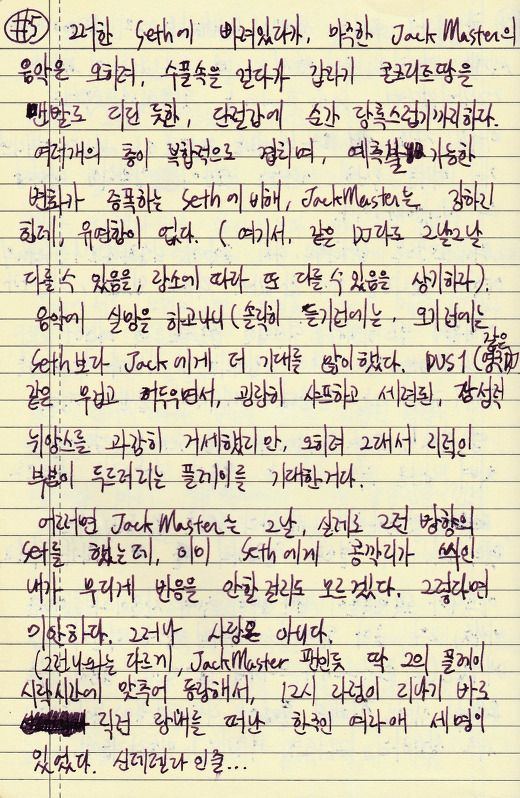 #5 그러한 Seth에 비려있다가, 마주한 Jack Master의
음악은 오히려, 수풀속을 걷다가 갑자기 콘크리트땅을
맨발로 디딘 듯한, 단절감에 순간 당혹스럽기까지하다.
여러개의 층이 복합적으로 겹치며, 예측불가능한
변화가 증폭하는 Seth에 비해, JackMaster는 강하긴
한데, 유연함이 없다. (여기서, 같은 DJ라도 그날그날
다를 수 있음을, 장소에 따라 또 다를 수 있음을 상기하라).
음악에 실망을 하고나니 (솔직히 듣기전에는, 오기전에는
Seth보다 Jack에게 더 기대를 많이했다. DVS1 (같은 DJ)
같은 무겁고 어두우면서, 굉장히 샤프하고 세련된, 감성적
뉘앙스를 과감히 거세했지만, 오히려 그래서 지적인
부분이 두드러지는 플레이를 기대한거다.
어쩌면 Jack Master는 그날, 실제로 그런 방향의
Set를 했는데, 이미 Seth에게 콩깍지가 씌인
내가 무디게 반응을 안한걸지도 모르겠다. 그렇다면
미안하다. 그러나 사랑은 아니다.
(그런나와는 다르게, JackMaster 팬인듯 딱 그의 플레이
시작시간에 맞추어 등장해서, 12시 자정이 지나기 바로
직전 장내를 떠난 한국인 여자애 세명이
있었다. 신데렐라인줄...